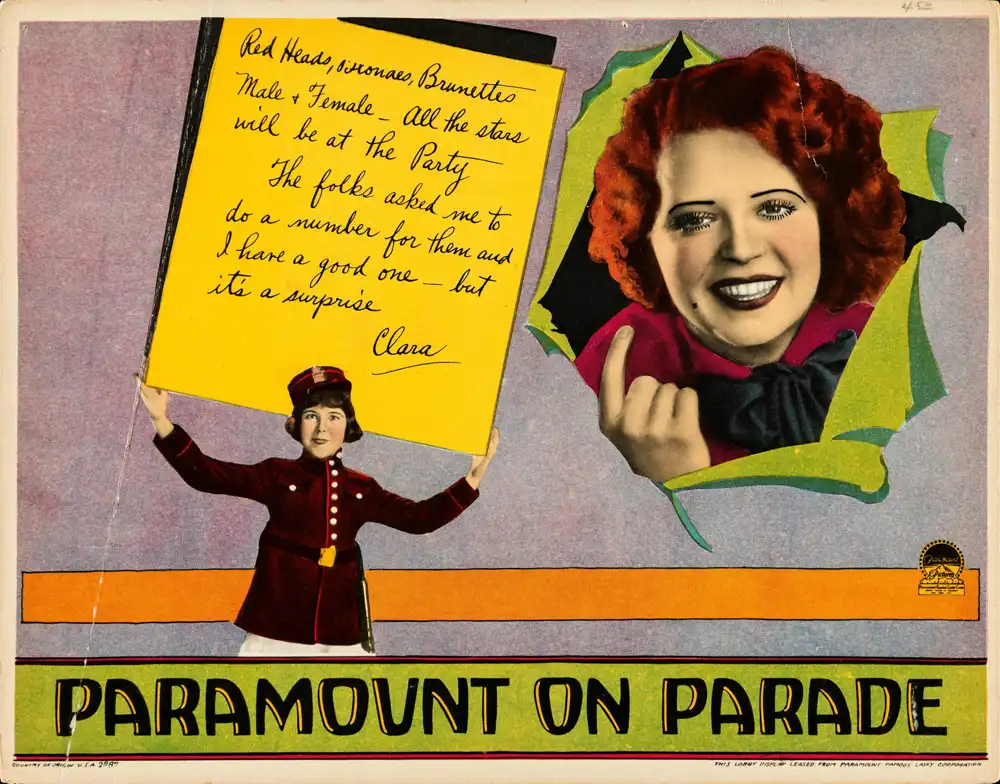 Red Heads, Blondes, Brunettes
Male & Female – All the stars
will be at the Party
The folks asked me to
do a number for them and
I have a good one – but
it's a surprise
Clara
Paramount
Pictures
PARAMOUNT ON PARADE
COUNTRY OF ORIGIN U.S.A
THIS LOBBY DISPLAY LEASED FROM PARAMOUNT FAMOUS LASKY CORPORATION